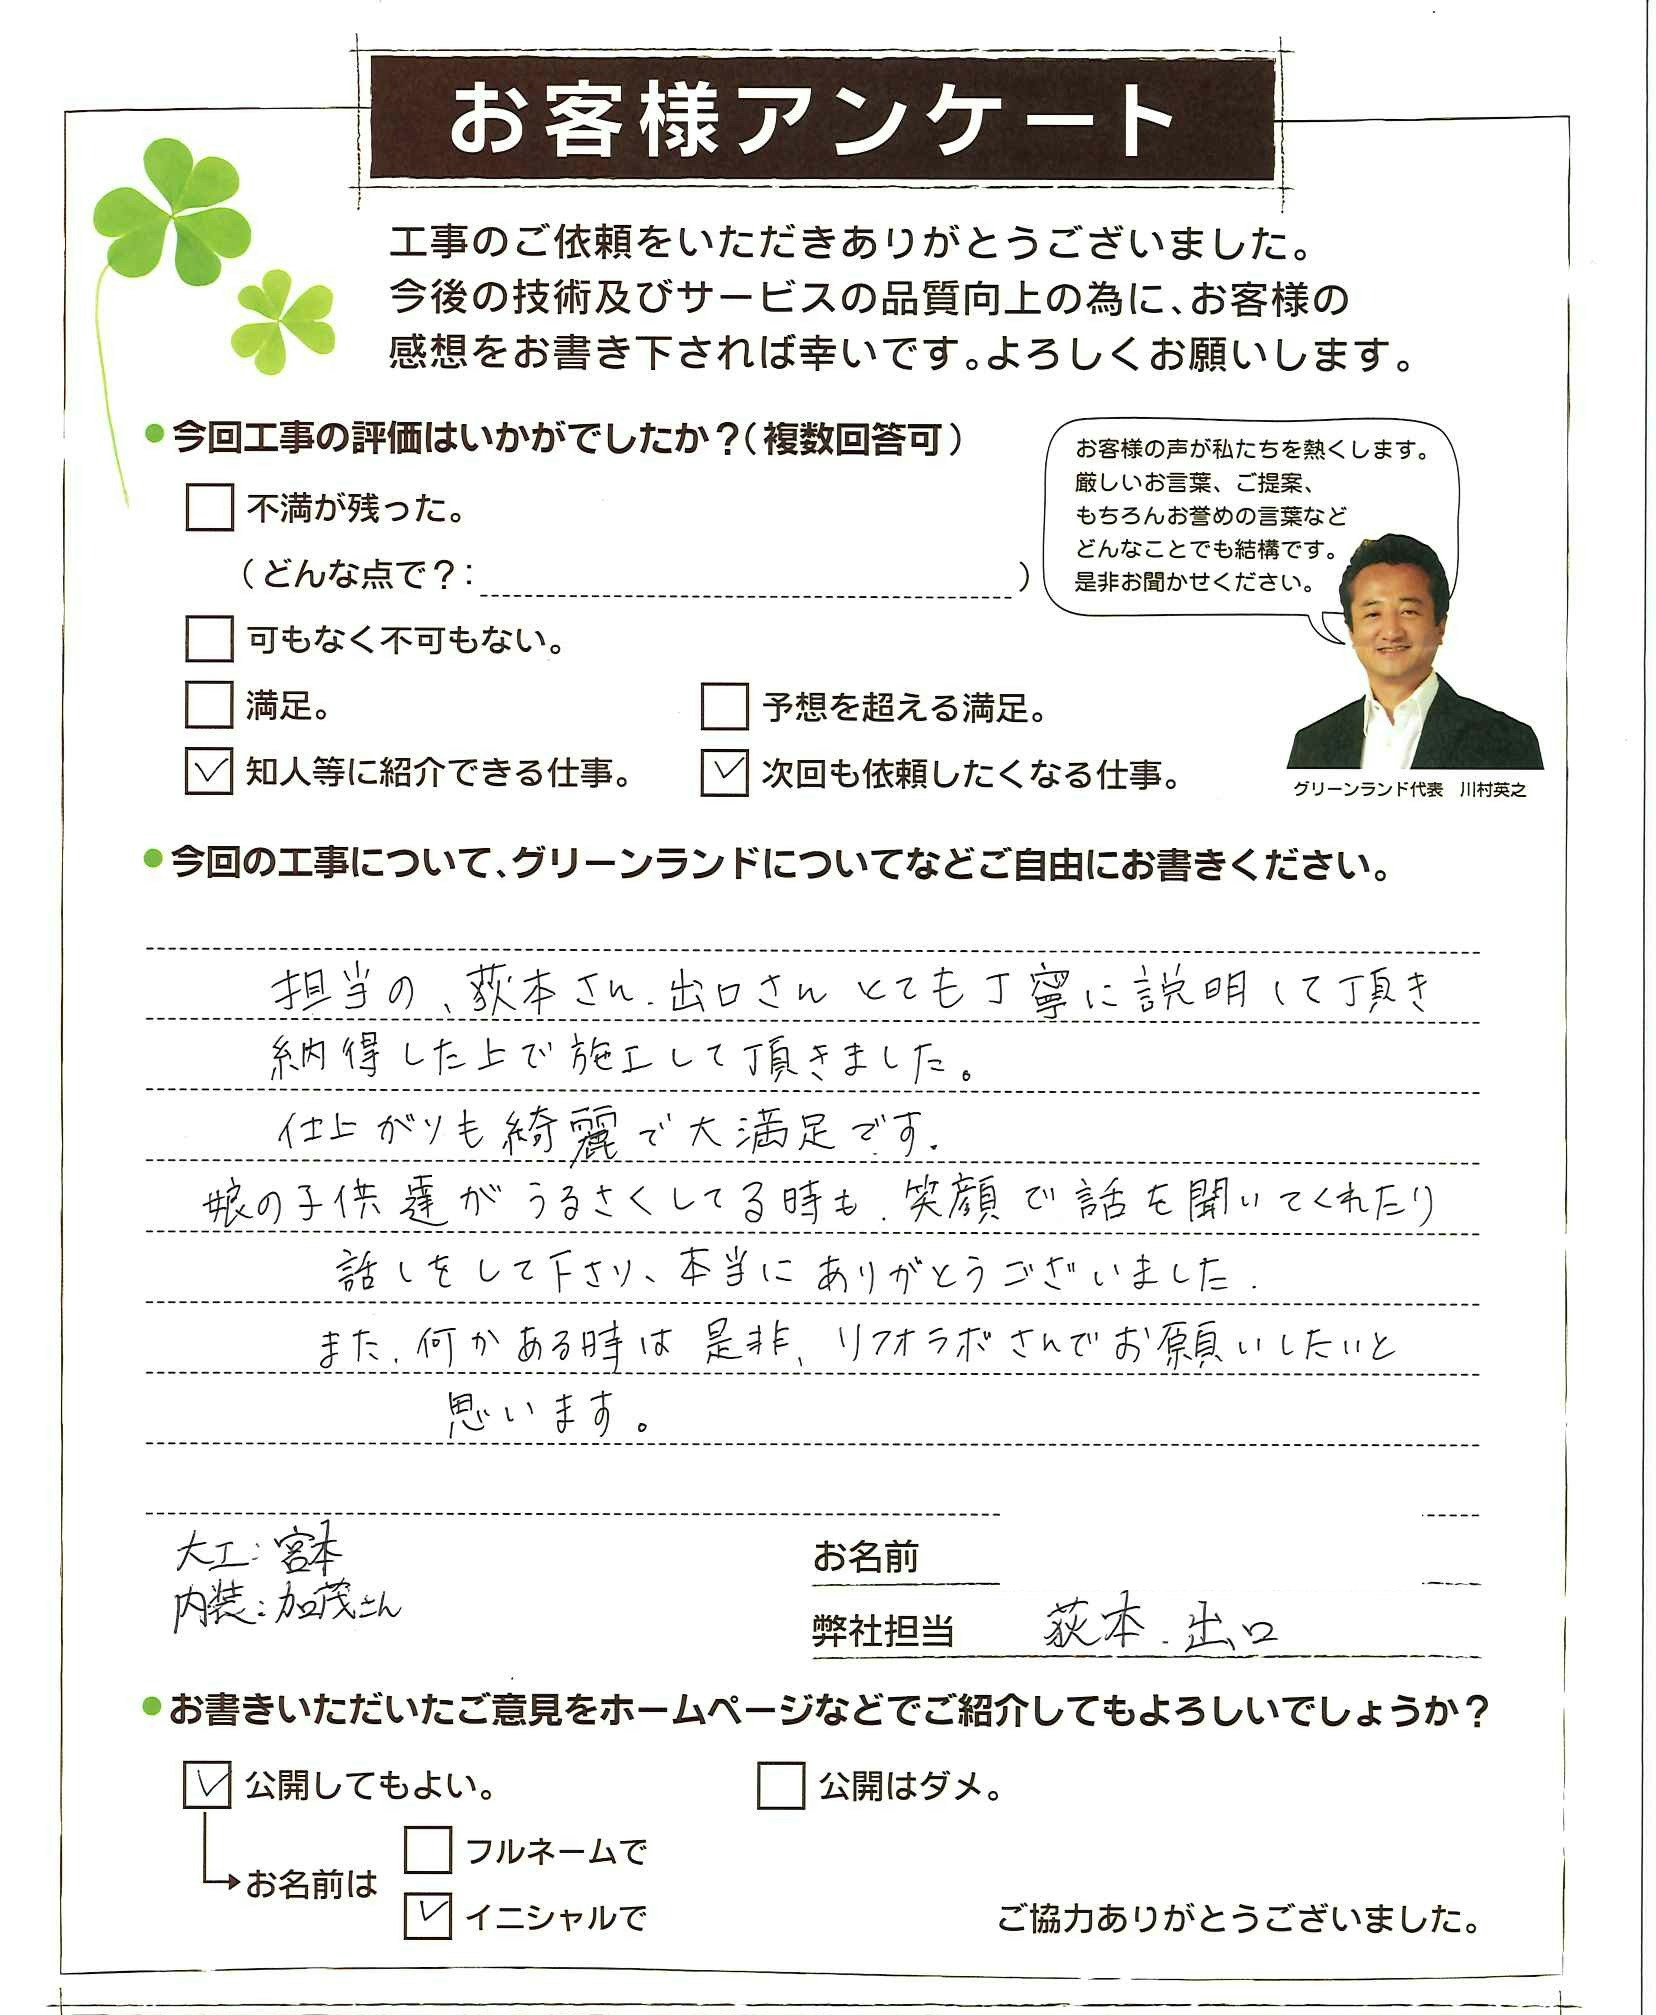 お客様アンケート
工事のご依頼をいただきありがとうございました。
今後の技術及びサービスの品質向上の為に、お客様の
感想をお書き下されば幸いです。よろしくお願いします。
●今回工事の評価はいかがでしたか？（複数回答可）
お客様の声が私たちを熱くします。
厳しいお言葉、ご提案、
もちろんお誉めの言葉など
どんなことでも結構です。
是非お聞かせください。
不満が残った。
（どんな点で？：　　　）
可もなく不可もない。
満足。
予想を超える満足。
知人等に紹介できる仕事。
次回も依頼したくなる仕事。
グリーンランド代表　川村英之
●今回の工事について、グリーンランドについてなどご自由にお書きください。
担当の、荻本さん、出口さん とても丁寧に説明して頂き
納得した上で施工して頂きました。
仕上がりも綺麗で大満足です.
娘の子供達がうるさくしてる時も、笑顔で話を聞いてくれたり
話しをして下さり、本当にありがとうございました.
また、何かある時は是非、リフォラボさんでお願いしたいと
思います。
大工：宮本
内装：加茂さん
お名前
弊社担当　荻本、出口
●お書きいただいたご意見をホームページなどでご紹介してもよろしいでしょうか？
公開してもよい。
公開はダメ。
お名前は
フルネームで
イニシャルで
ご協力ありがとうございました。